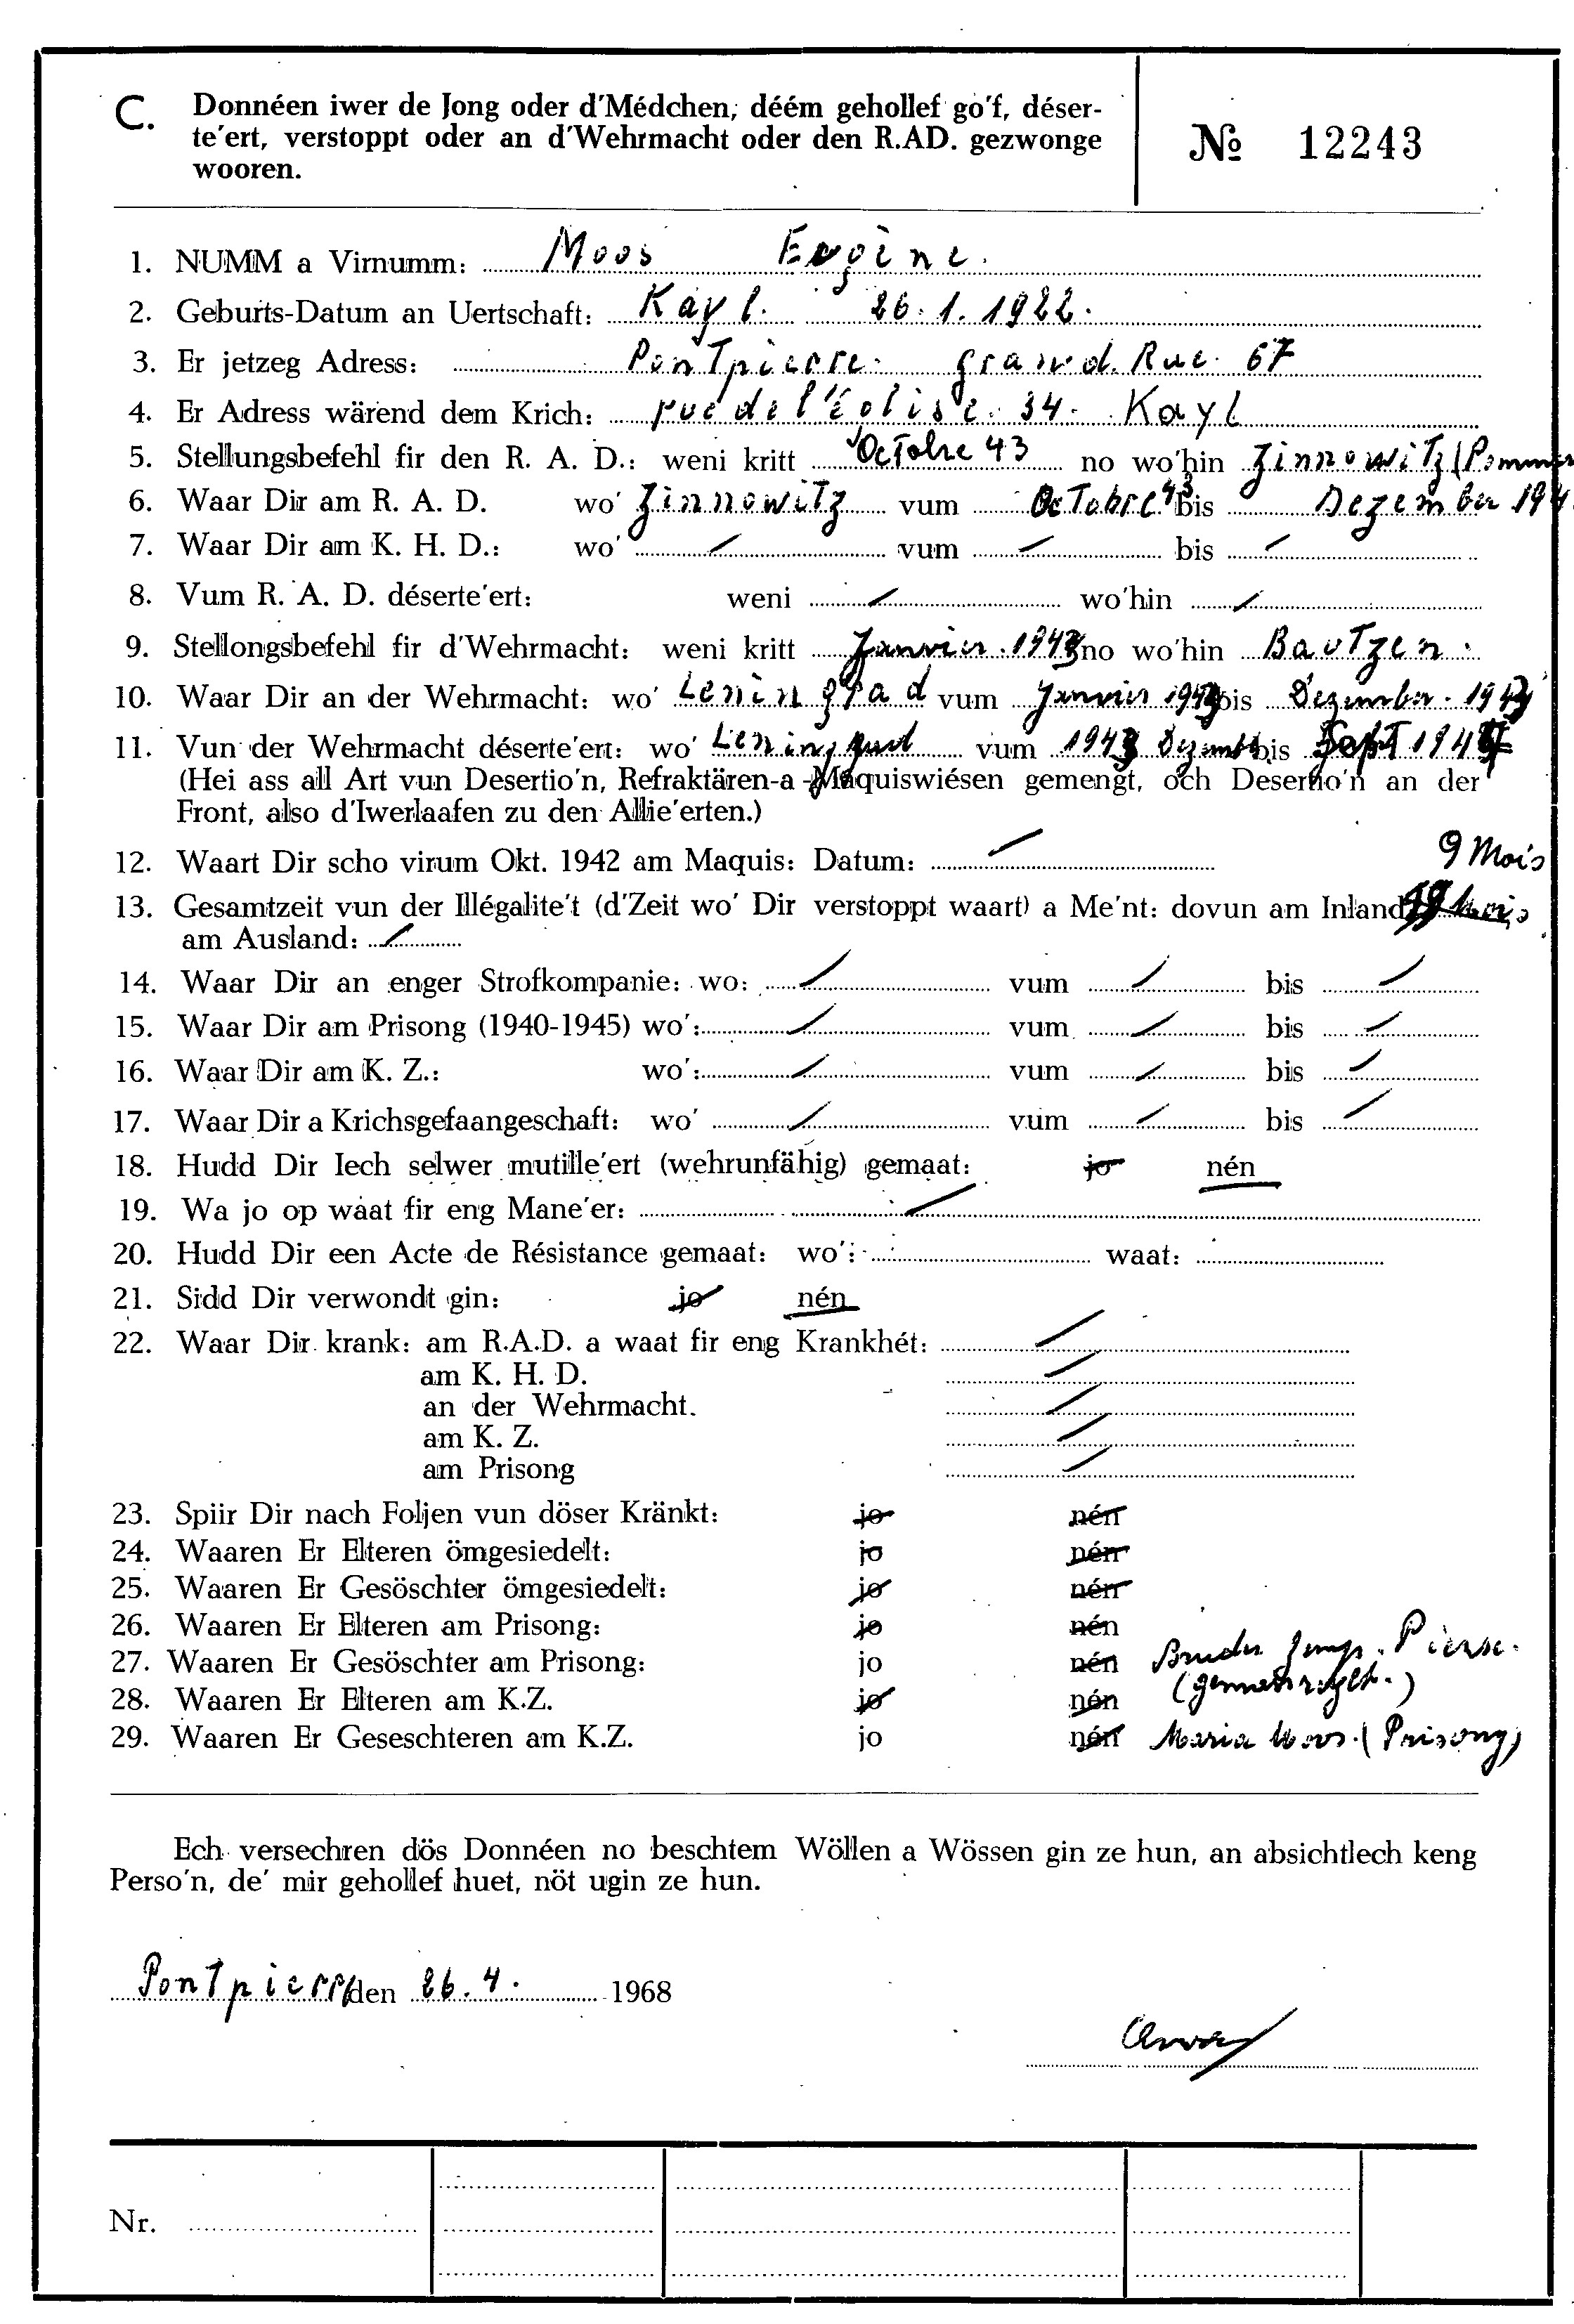 C. Donnéen iwer de Jong oder d'Médchen, déém gehollef go'f, déser-
te'ert, verstoppt oder an d'Wehrmacht oder den R.AD. gezwonge
wooren.
№ 12243
1. NUMM a Virnumm: Moos Eugène.
2. Geburts-Datum an Uertschaft: Kayl. 26.1.1922.
3. Er jetzeg Adress: Pontpierre. grand. Rue. 67
4. Er Adress wärend dem Krich: rue de l'église. 34. Kayl
5. Stellungsbefehl fir den R. A. D.: weni kritt Octobre 43 no wo'hin Zinnowitz (Pommer
6. Waar Dir am R. A. D. wo' Zinnowitz vum Octobre 43 bis Dezember 194
7. Waar Dir am K. H. D.: wo' / vum / bis /
8. Vum R. A. D. déserte'ert: weni / wo'hin /
9. Stellongsbefehl fir d'Wehrmacht: weni kritt Janvier. 1943 no wo'hin Bautzen.
10. Waar Dir an der Wehrmacht: wo' Leningrad vum Janvier 1943 bis Dezember. 1943
11. Vun der Wehrmacht déserte'ert: wo' Leningrad vum 1943 Dezemb bis Sept 194
(Hei ass all Art vun Desertio'n, Refraktären-a -Maquiswiésen gemengt, och Desertio'n an der
Front, also d'Iwerlaafen zu den Allie'erten.)
12. Waart Dir scho virum Okt. 1942 am Maquis: Datum: / 9 Mois
13. Gesamtzeit vun der Illégalite't (d'Zeit wo' Dir verstoppt waart) a Me'nt: dovun am Inland
am Ausland: /
14. Waar Dir an enger Strofkompanie: wo: / vum / bis /
15. Waar Dir am Prisong (1940-1945) wo': / vum / bis /
16. Waar Dir am K. Z.: wo': / vum / bis /
17. Waar Dir a Krichsgefaangeschaft: wo' / vum / bis /
18. Hudd Dir Iech selwer mutille'ert (wehrunfähig) gemaat: jo nén
19. Wa jo op waat fir eng Mane'er: /
20. Hudd Dir een Acte de Résistance gemaat: wo': waat:
21. Sidd Dir verwondt gin: jo nén
22. Waar Dir krank: am R.A.D. a waat fir eng Krankhét: /
am K. H. D. /
an der Wehrmacht. /
am K. Z. /
am Prisong /
23. Spiir Dir nach Foljen vun döser Kränkt: jo nén
24. Waaren Er Elteren ömgesiedelt: jo nén
25. Waaren Er Gesöschter ömgesiedelt: jo nén
26. Waaren Er Elteren am Prisong: jo nén
27. Waaren Er Gesöschter am Prisong: jo nén Bruder Pierre.
28. Waaren Er Elteren am K.Z. jo nén
29. Waaren Er Geseschteren am K.Z. jo nén Maria Moos. (Prisong)
Ech versechren dös Donnéen no beschtem Wöllen a Wössen gin ze hun, an absichtlech keng
Perso'n, de' mir gehollef huet, nöt ugin ze hun.
Pontpierre den 26.4. 1968
Nr.